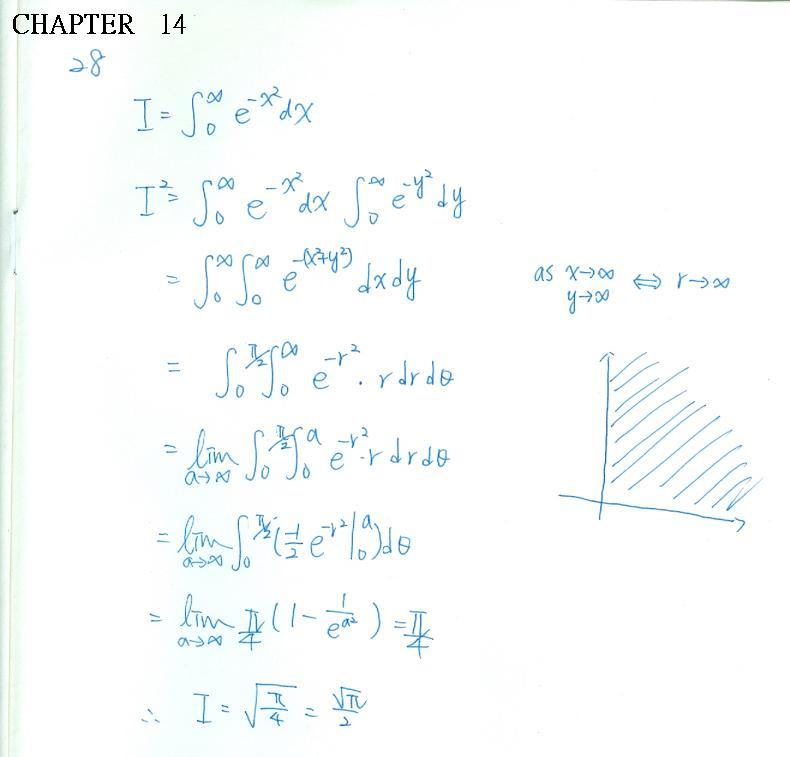 CHAPTER 14
28
I = ∫₀^∞ e^{-x²} dx
I² = ∫₀^∞ e^{-x²} dx ∫₀^∞ e^{-y²} dy
= ∫₀^∞ ∫₀^∞ e^{-(x²+y²)} dx dy
as x→∞ y→∞ ⟺ r→∞
= ∫₀^{π/2} ∫₀^∞ e^{-r²} · r dr dθ
= lim_{a→∞} ∫₀^{π/2} ∫₀^a e^{-r²} · r dr dθ
= lim_{a→∞} ∫₀^{π/2} (-1/2 e^{-r²} |₀^a) dθ
= lim_{a→∞} π/4 (1 - 1/e^{a²}) = π/4
∴ I = √(π/4) = √π/2